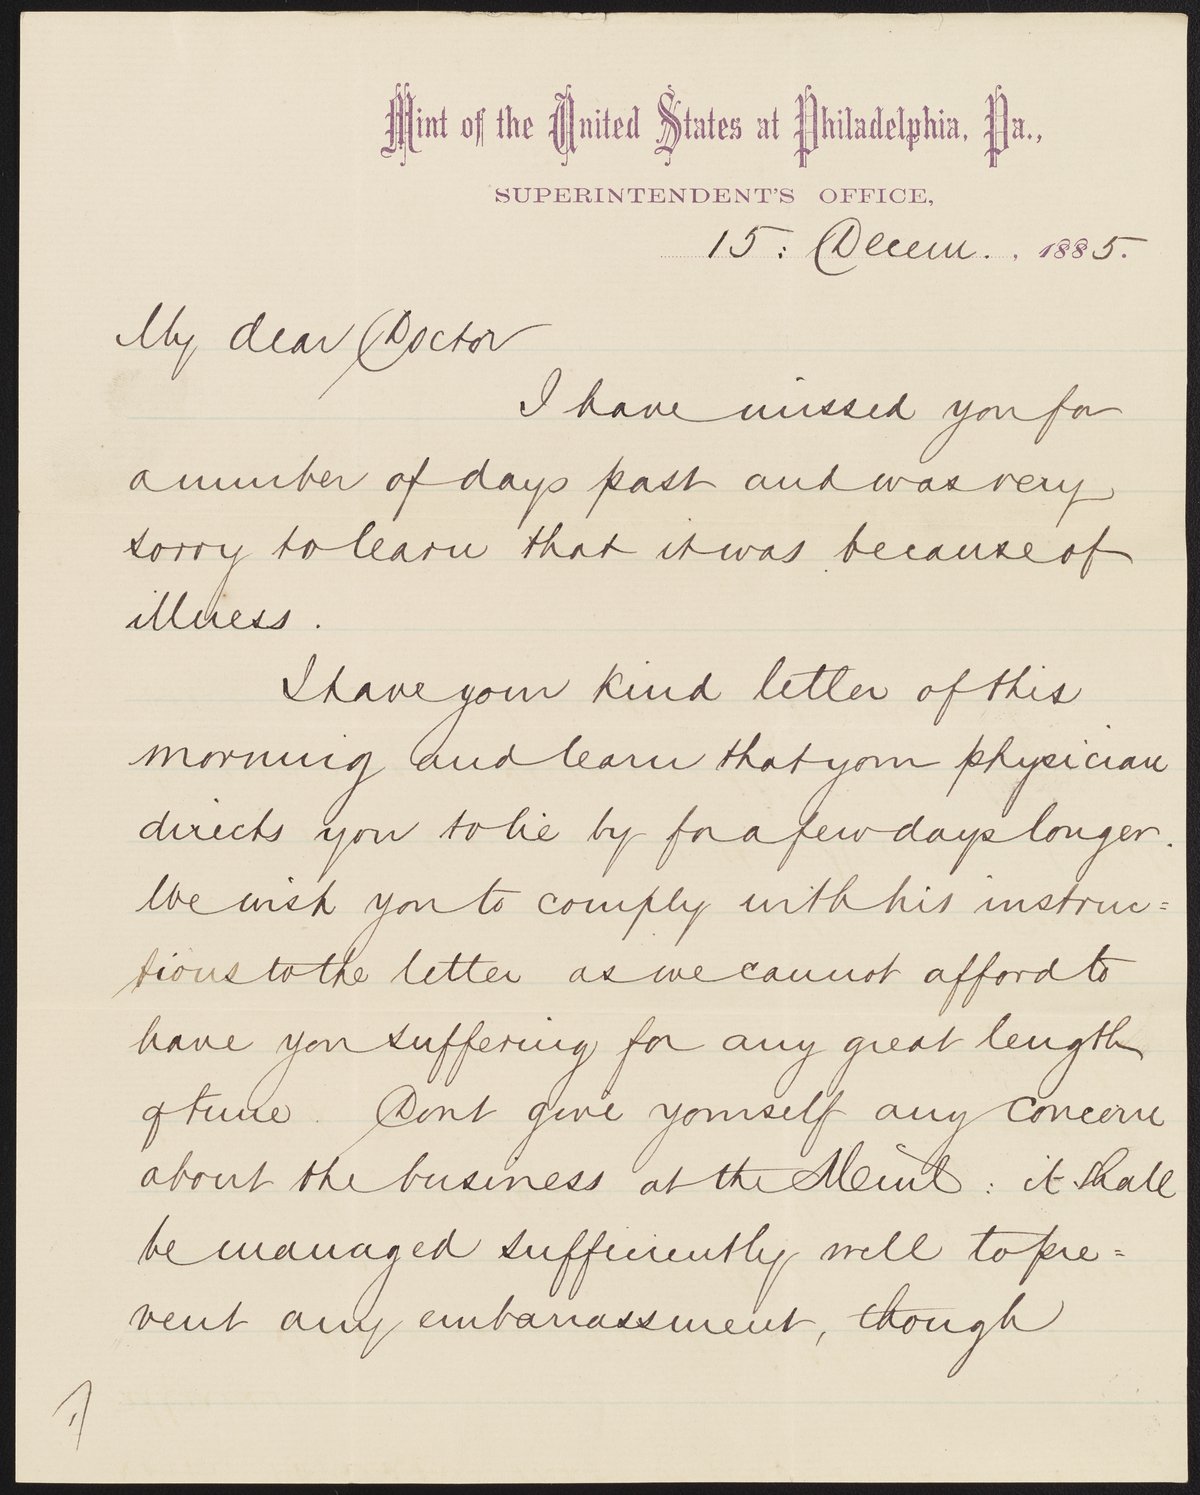 Mint of the United States at Philadelphia, Pa.,
SUPERINTENDENT'S OFFICE,
15: Decem. , 1885.
My dear Doctor
I have missed you for
a number of days past and was very
sorry to learn that it was because of
illness.
I have your kind letter of this
morning and learn that your physician
directs you to lie by for a few days longer.
We wish you to comply with his instruc=
tions to the letter as we cannot afford to
have you suffering for any great length
of time. Dont give yourself any concern
about the business at the Mint: it shall
be managed sufficiently well to pre=
vent any embarrassment, though